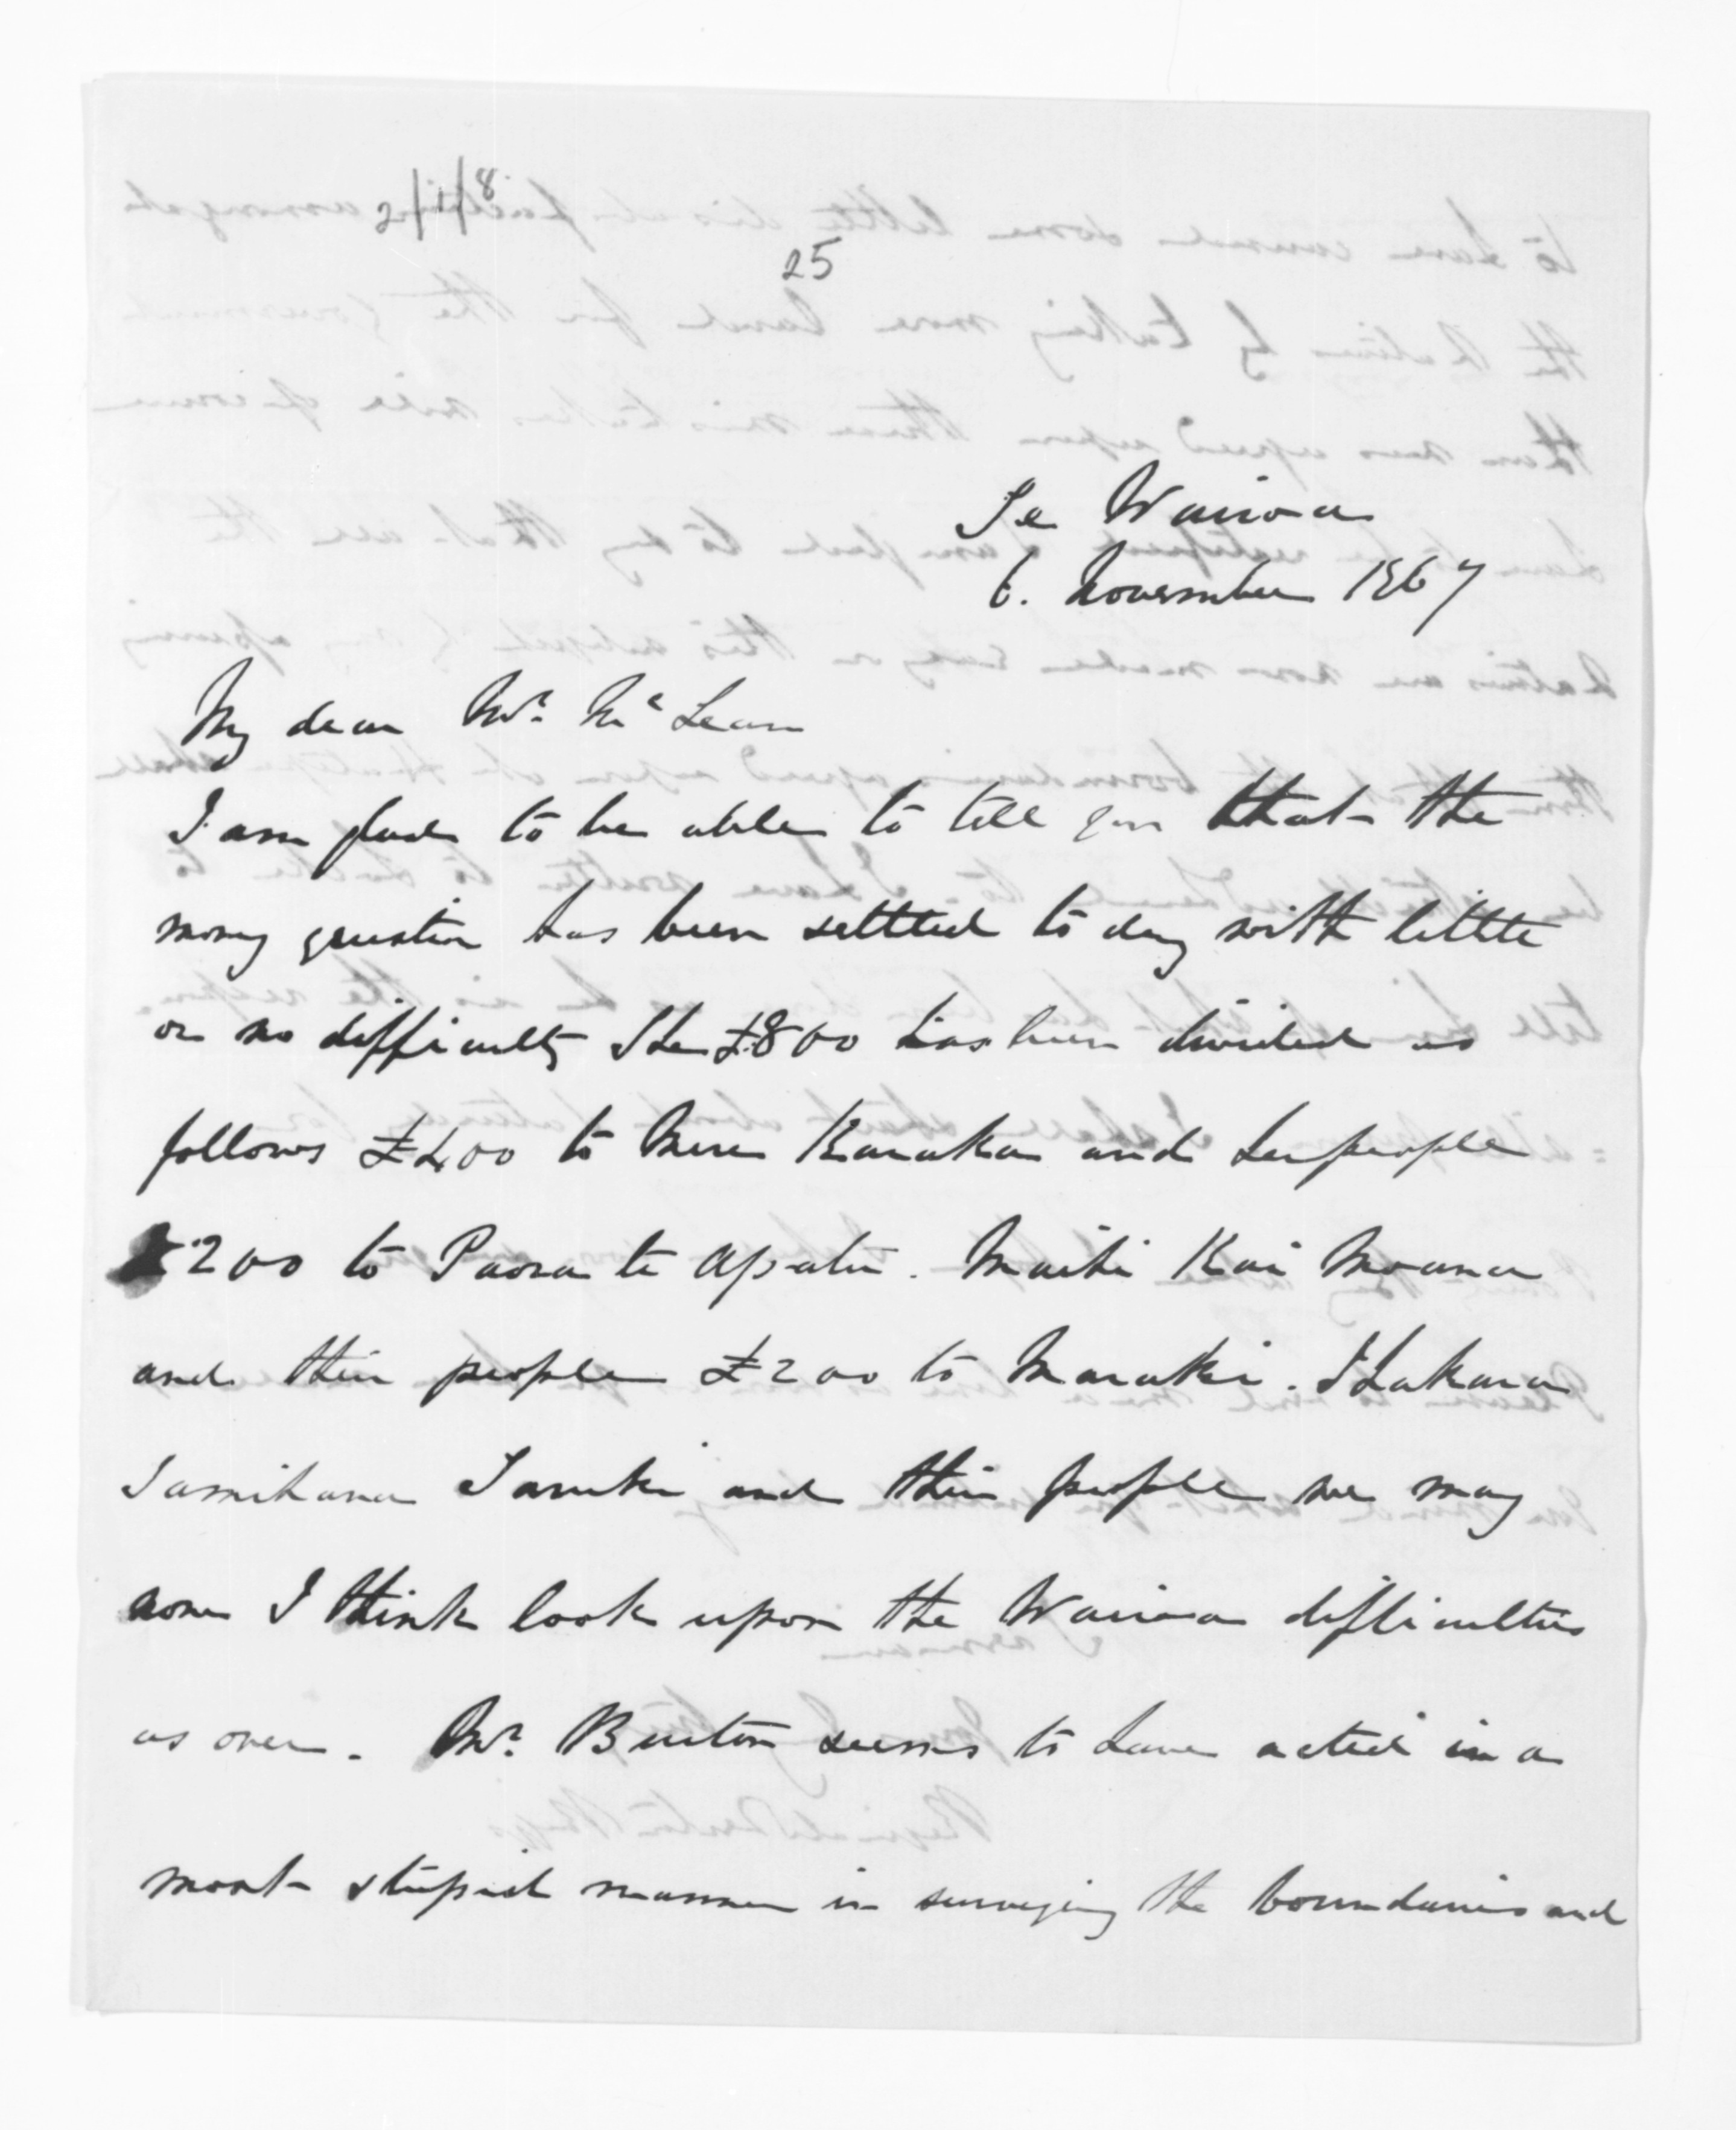 2/1/8.
25
Te Wairoa
6. November 1867
My dear Mr. McLean
I am glad to be able to tell you that the
money question has been settled to day with little
or no difficulty The £800 has been divided as
follows £400 to Mere Karaka and her people
£200 to Paora te Apatu. Maihi Kai Moana
and their people £200 to Maraki. Ihakara
Tamihana Taruke and their people we may
now I think look upon the Wairoa difficulties
as over. Mr. Burton seems to have acted in a
most stupid manner in surveying the boundaries and